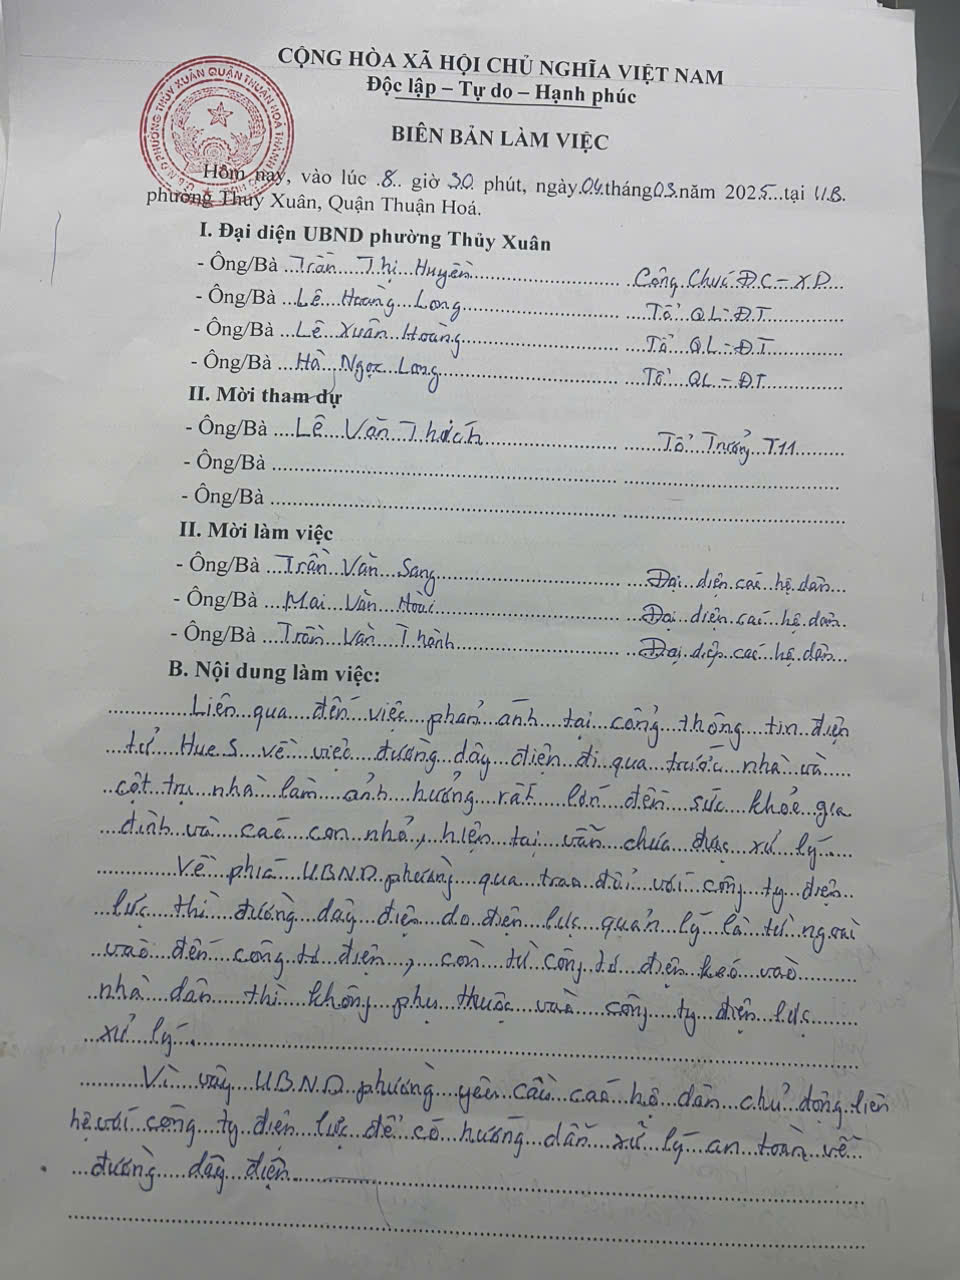 CỘNG HÒA XÃ HỘI CHỦ NGHĨA VIỆT NAM
Độc lập – Tự do – Hạnh phúc
BIÊN BẢN LÀM VIỆC
U.B.N.D PHƯỜNG THỦY XUÂN QUẬN THUẬN HOÁ THÀNH
Hôm nay, vào lúc .8.. giờ 30 phút, ngày.04.tháng03.năm 2025...tại U.B.
phường Thủy Xuân, Quận Thuận Hoá.
I. Đại diện UBND phường Thủy Xuân
- Ông/Bà ...Trần....Thị...Huyền............ Công..Chức.Đ.C – X.D...
- Ông/Bà ...Lê...Hoàng...Long............ Tổ..Q.L-Đ.T............
- Ông/Bà ...Lê...Xuân...Hoàng............ Tổ..Q.L-Đ.T............
- Ông/Bà ...Hà...Ngọc...Long............ Tổ..QL – ĐT............
II. Mời tham dự
- Ông/Bà ....Lê....Văn Thách............ Tổ..Trưởng...T11.........
- Ông/Bà ............
- Ông/Bà ............
II. Mời làm việc
- Ông/Bà ...Trần...Văn...Sang............ ...Đại..diện.các..hộ.dân...
- Ông/Bà ...Mai...Văn...Hoài............ ...Đại..diện.các..hộ.dân.
- Ông/Bà ...Trần...Văn...Thành............ ...Đại.diện.các..hộ.dân...
B. Nội dung làm việc:
............Liên...qua....đến...việc...phản..ánh...tại...cổng..thông...tin..điện
...tử...Hue.S...về...việc...đường..dây..điện..đi..qua..trước...nhà..và.....
..cột..trụ..nhà...làm..ảnh..hưởng...rất..lớn..đến...sức..khỏe..gia
...đình..và..các..con..nhỏ.,.hiện..tại..vẫn..chưa..được..xử..lý.....
............Về..phía...U.B.N.D.phường..qua..trao..đổi..với..công..ty..điện..
...lực...thì..đường..dây..điện..do..điện..lực..quản..lý..là..từ..ngoài
...vào..đến...công.tơ..điện..,..còn..từ..công.tơ..điện..kéo..vào.........
..nhà..dân...thì...không..phụ..thuộc..vào...công..ty..điện..lực.......
...xử..lý............
..........Vì..vậy...U.B.N.D..phường..yêu..cầu..các..hộ..dân..chủ..động.liên
hệ.với..công...ty..điện..lực..để..có..hướng..dẫn..xử..lý..an..toàn..về...
...đường....dây..điện............